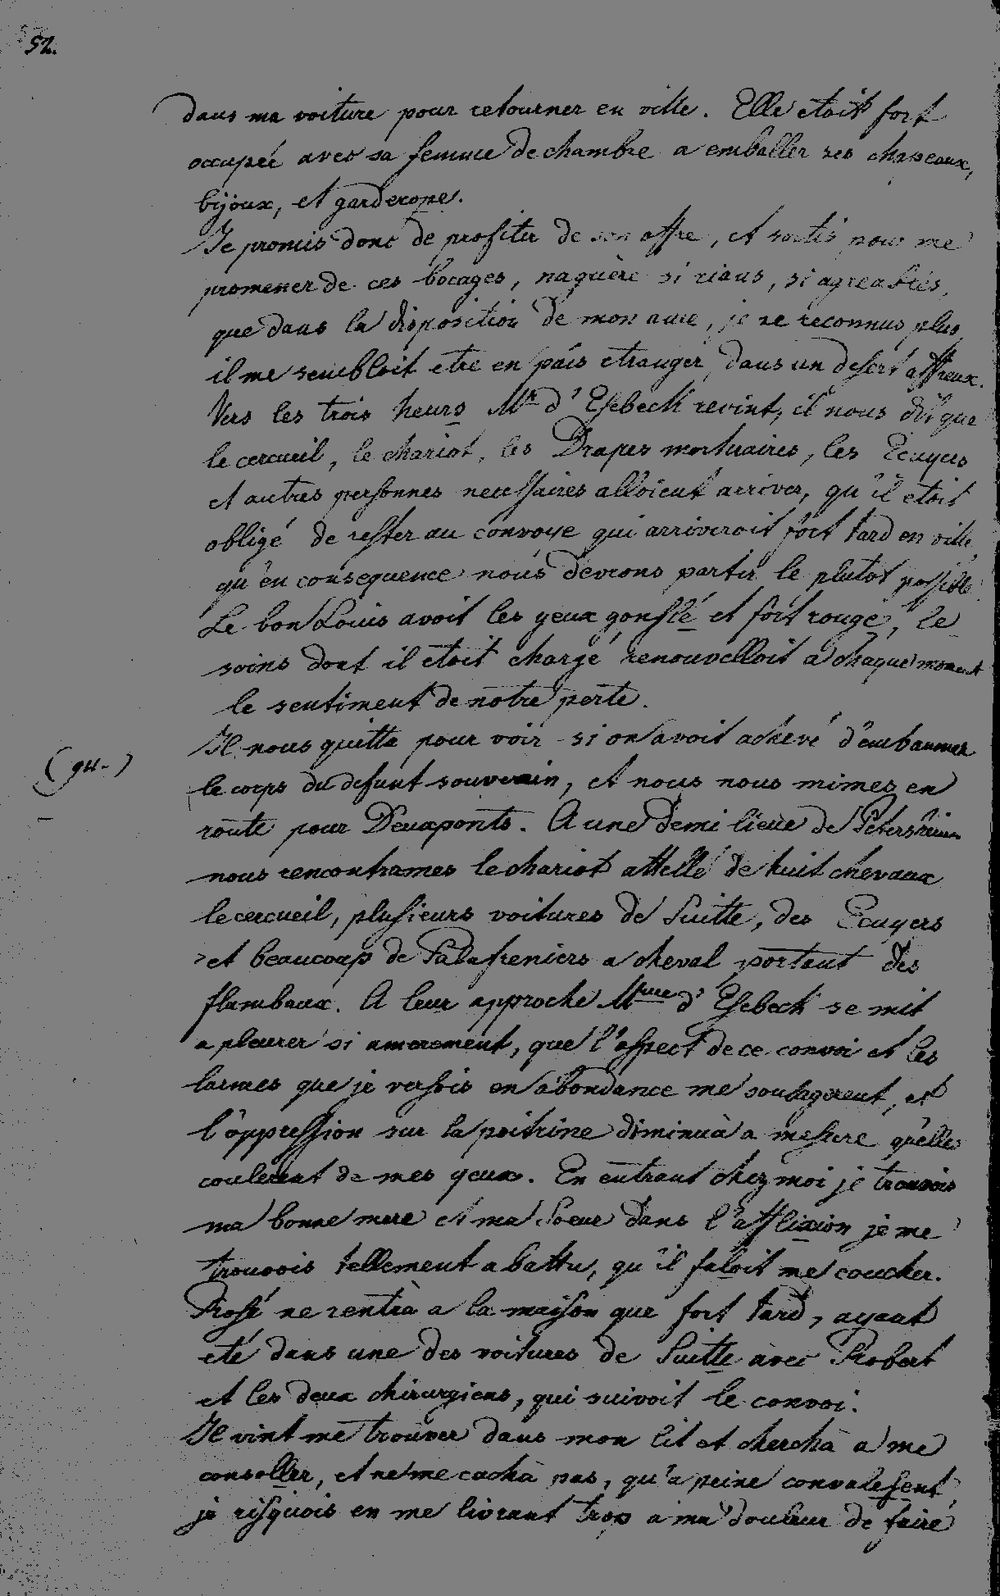 52.
dans ma voiture pour retourner en ville. Elle etoit fort
occupée avec sa femme de chambre a emballer ses chapeaux,
bijoux, et garderope.
Je promis donc de profiter de son offre, et sortis pour me
promener de ces bocages, naguère si rians, si agreables,
que dans la disposition de mon ame, je ne reconnus plus,
il me sembloit etre en païs etranger, dans un desert affreux.
Vers les trois heurs Mr d'Esebeck revint, il nous dit que
le cercueil, le chariot, les Drapes mortuaires, les Ecuyers
et autres personnes necessaires alloient arriver, qu'il etoit
obligé de rester au convoye qui arriveroit fort tard en ville,
qu'en consequence nous devions partir le plutot possible.
Le bon Louis avoit les yeux gonflé et fort rouge, le
soins dont il etoit chargé renouvelloit a chaque moment
le sentiment de notre perte.
Il nous quitta pour voir si on avoit achevé d'embaumer
(94.)
le corps du defunt souverain, et nous nous mimes en
route pour Deuxponts. A une demi lieue de Petersheim
nous rencontrames le chariot attellé de huit chevaux
le cercueil, plusieurs voitures de Suitte, des Ecuyers
et beaucoup de Palafreniers a cheval portant des
flambaux. A leur approche Mme d'Esebeck se mit
a pleurer si amerement, que l'aspect de ce convoi et les
larmes que je versois en abondance me soulagerent, et
l'oppression sur la poitrine diminua a mesure qu'elle
coulerent de mes yeux. En entrant chez moi je trouvois
ma bonne mere et ma Soeur dans l'aflixion je me
trouvois tellement abattu, qu'il faloit me coucher.
Rosé ne rentra a la maison que fort tard, ayant
eté dans une des voitures de Suitte avec Robert
et les deux chirurgiens, qui suivoit le convoi.
Il vint me trouver dans mon lit et cherchà a me
consoller, et ne me cachà pas, qu'a peine convalesent
je risquois en me livrant trop a ma douleur de faire